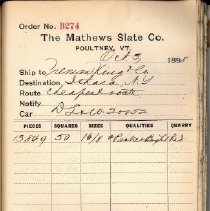 Order No. B274
The Mathews Slate Co.
POULTNEY, VT.
Oct 3 1898
Ship to Treman King & Co
Destination, Ithaca N.Y.
Route Cheapest route
Notify
Car D L & W 20052
PIECES SQUARES SIZES QUALITIES QUARRY
13849 50 16/8